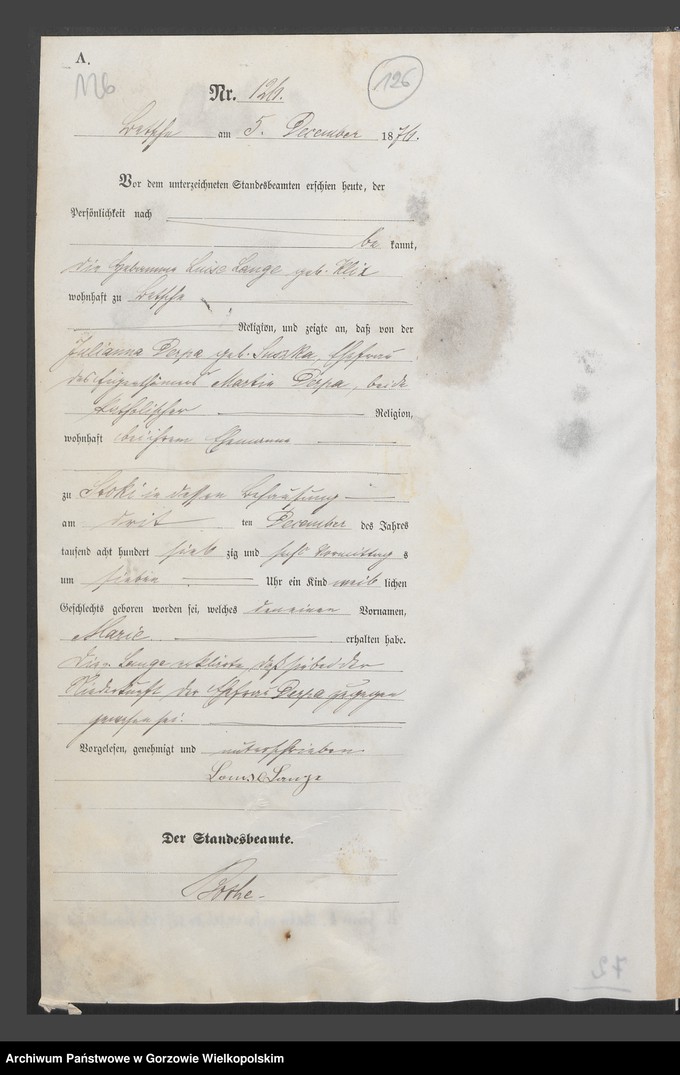 A.
126
Nr. 126.
126
Betsche am 5. December 1876.
Vor dem unterzeichneten Standesbeamten erschien heute, der
Persönlichkeit nach
be kannt,
die Hebamme Luise Lange geb. Klix
wohnhaft zu Betsche
Religion, und zeigte an, daß von der
Julianna Derpa geb. Suszka, Ehefrau
des Eigenthümers Martin Derpa, beide
katholischer Religion,
wohnhaft bei ihrem Ehemanne
zu Stoki in dessen Behausung
am drit ten December des Jahres
tausend acht hundert sieb zig und sechs Vormittag s
um sieben Uhr ein Kind weib lichen
Geschlechts geboren worden sei, welches den einen Vornamen,
Marie erhalten habe.
Die Lange erklärte, daß sie bei der
Niederkunft der Ehefrau Derpa zugegen
gewesen sei.
Vorgelesen, genehmigt und unterschrieben
Louise Lange
Der Standesbeamte.
Bothe
72
Archiwum Państwowe w Gorzowie Wielkopolskim